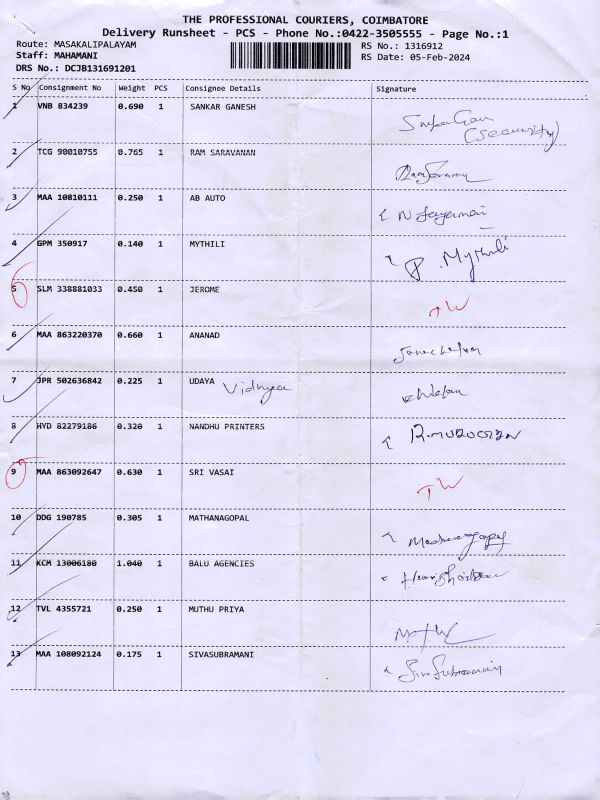 THE PROFESSIONAL COURIERS, COIMBATORE
Delivery Runsheet - PCS - Phone No.:0422-3505555 - Page No.:1
Route: MASAKALIPALAYAM RS No.: 1316912
Staff: MAHAMANI RS Date: 05-Feb-2024
DRS No.: DCJB131691201
S No Consignment No Weight PCS Consignee Details Signature
1 VNB 834239 0.690 1 SANKAR GANESH
(Security)
2 TCG 90010755 0.765 1 RAM SARAVANAN
3 MAA 10810111 0.250 1 AB AUTO
4 GPM 350917 0.140 1 MYTHILI P. Mythili
5 SLM 338881033 0.450 1 JEROME TW
6 MAA 863220370 0.660 1 ANANAD
7 JPR 502636842 0.225 1 UDAYA Vidhya
8 HYD 82279186 0.320 1 NANDHU PRINTERS
9 MAA 863092647 0.630 1 SRI VASAI TW
10 DDG 190785 0.305 1 MATHANAGOPAL
11 KCM 13006180 1.040 1 BALU AGENCIES
12 TVL 4355721 0.250 1 MUTHU PRIYA
13 MAA 108092124 0.175 1 SIVASUBRAMANI